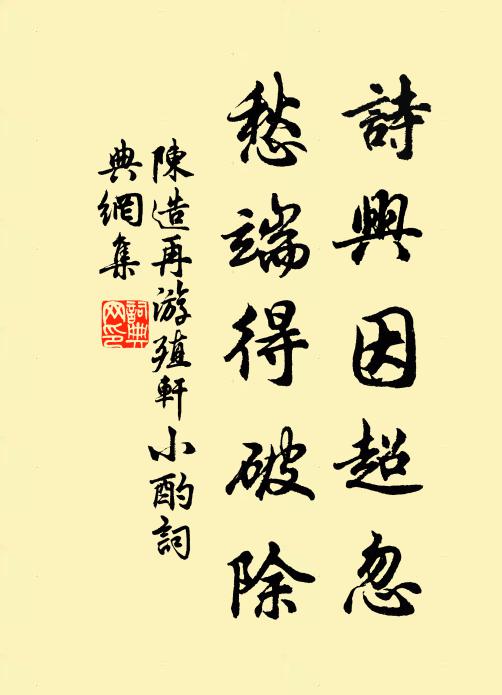 詩興因超忽
愁端得破除
陳造再游殖軒小酌詞
典網集
詞典
网印